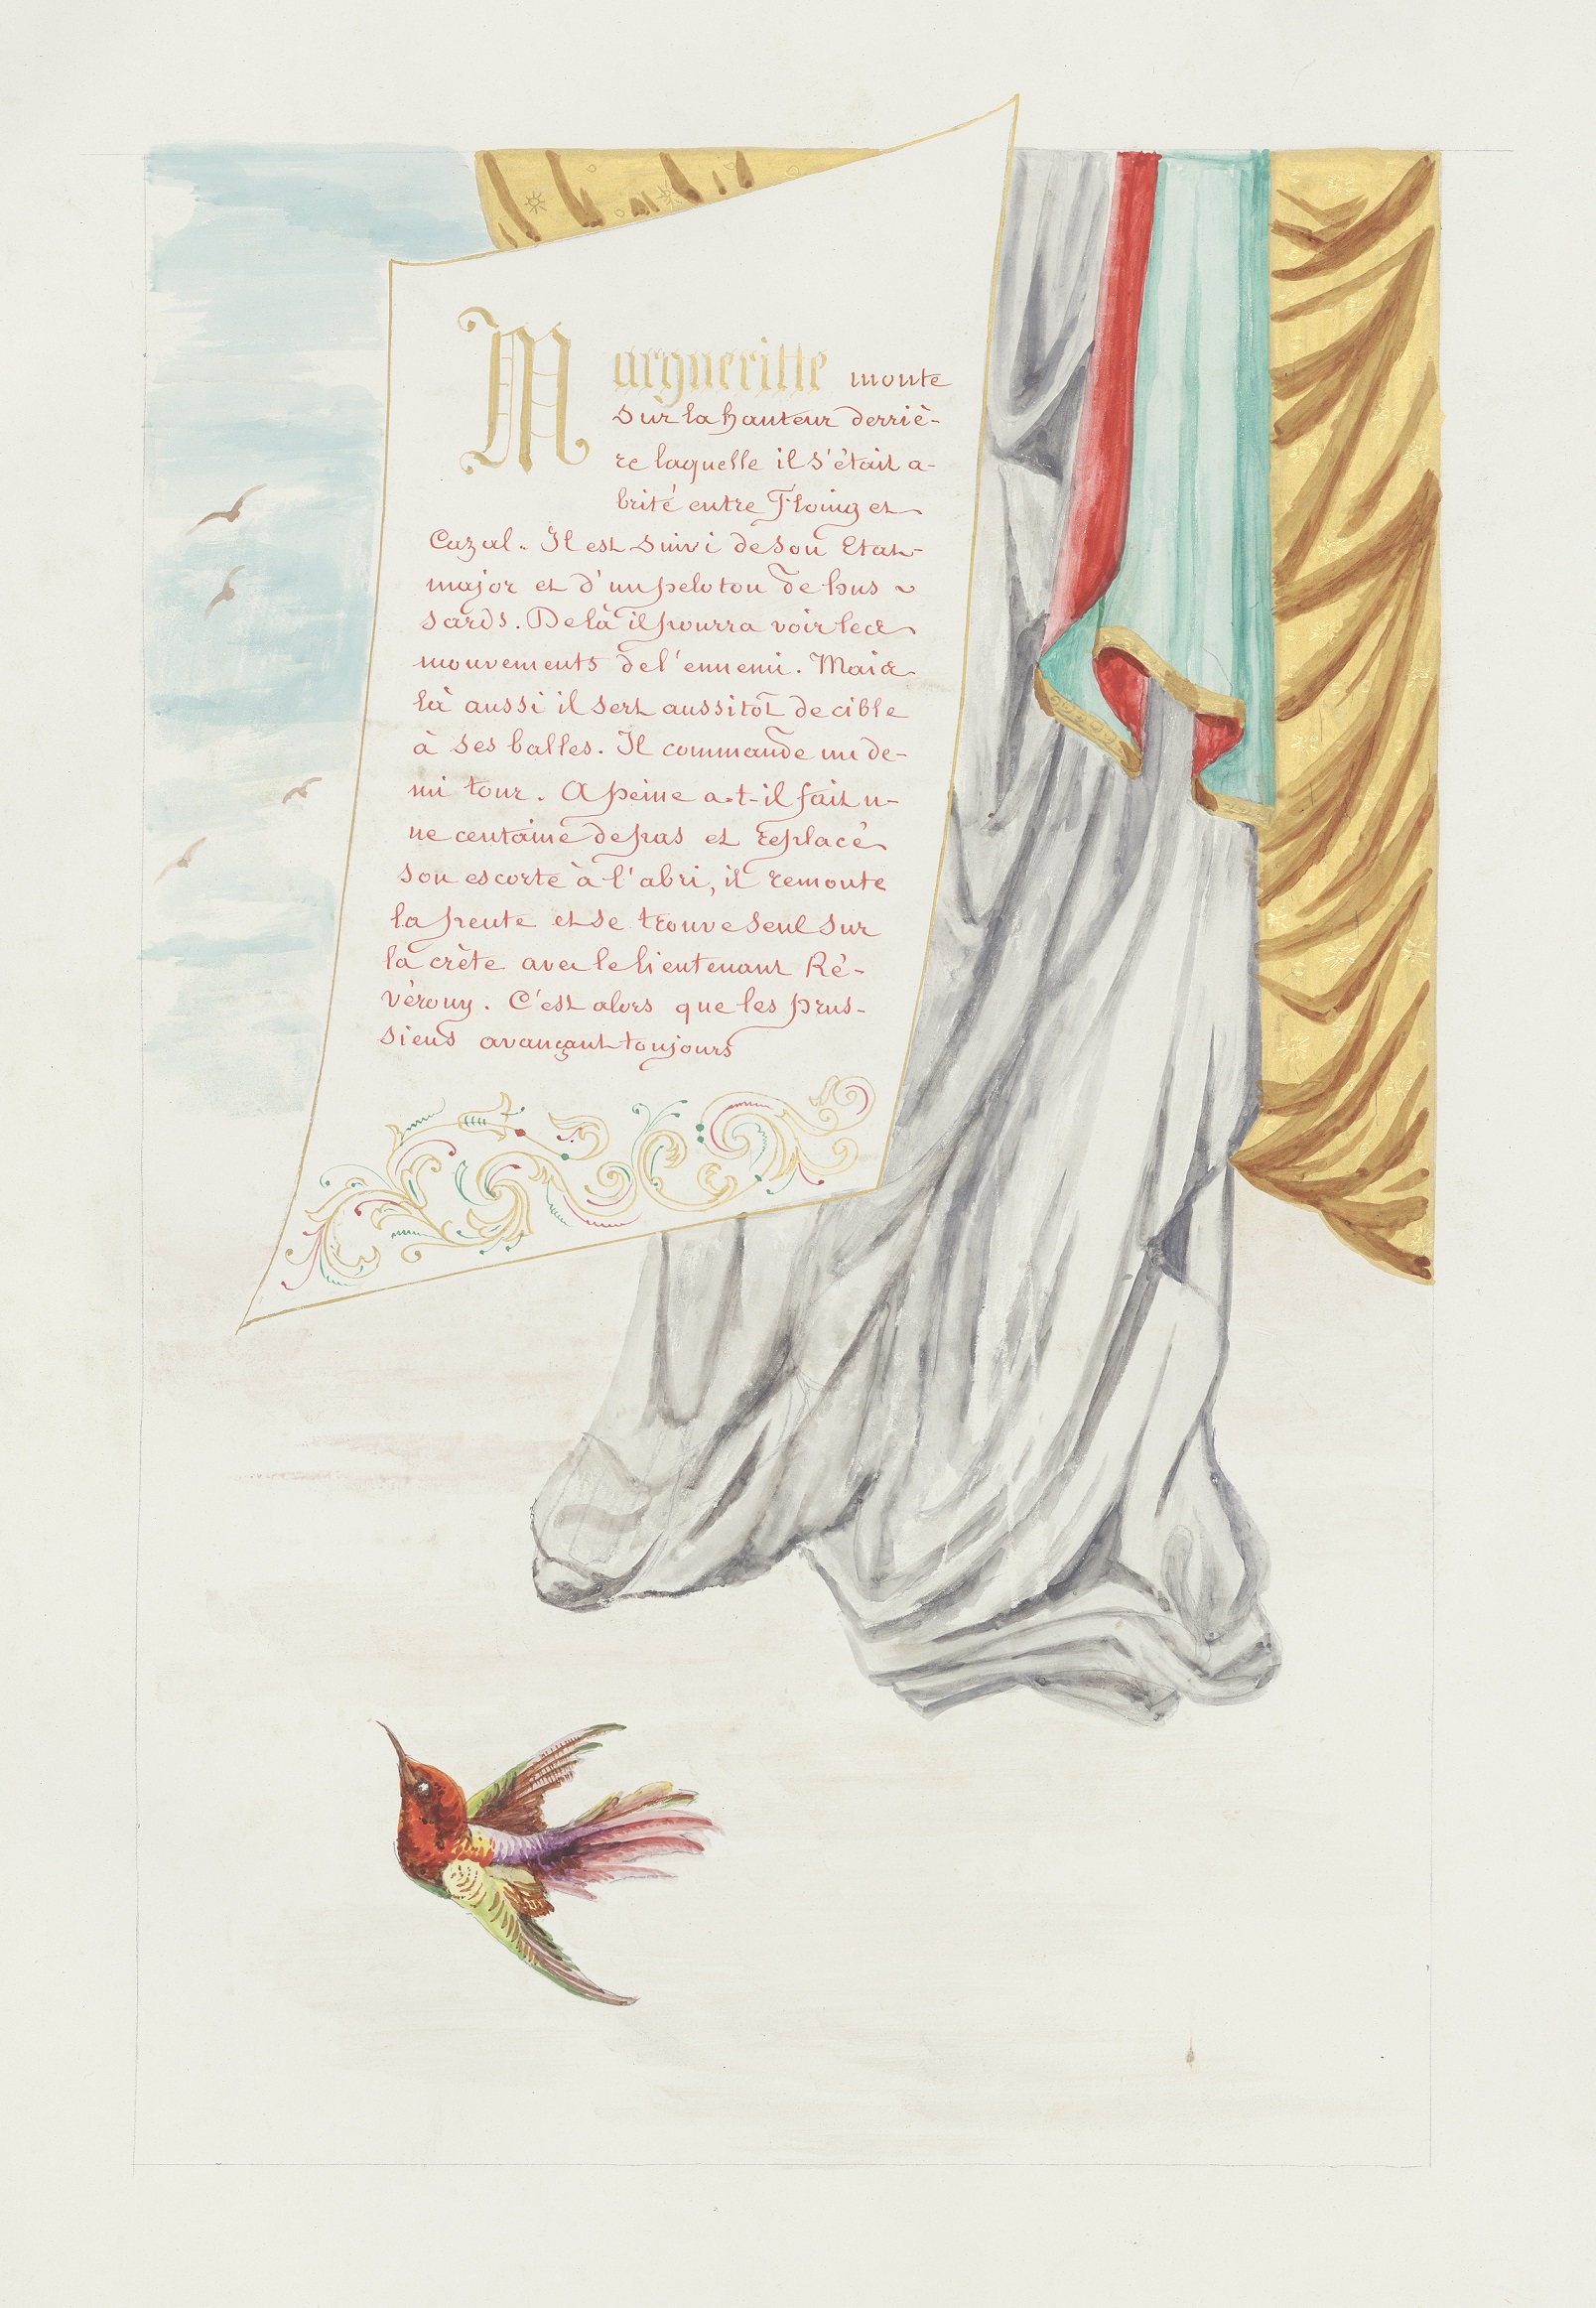 Margueritte monte
sur la hauteur derriè-
re laquelle il s'était a-
brité entre Floing et
Cazal. Il est suivi de son Etat-
major et d'un peloton de hus ~
sards. De là il pourra voir les
mouvements de l'ennemi. Mais
là aussi il sert aussitôt de cible
à ses balles. Il commande un de-
mi tour. A peine a-t-il fait u-
ne centaine de pas et replacé
son escorte à l'abri, il remonte
la pente et se trouve seul sur
la crète avec le lieutenant Ré-
vérony. C'est alors que les prus-
siens avançant toujours